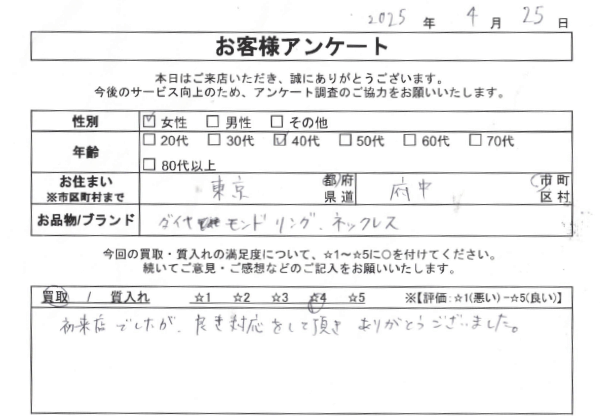 2025 年 4 月 25 日
お客様アンケート
本日はご来店いただき、誠にありがとうございます。
今後のサービス向上のため、アンケート調査のご協力をお願いいたします。
性別 ☑ 女性 □ 男性 □ その他
年齢 □ 20代 □ 30代 ☑ 40代 □ 50代 □ 60代 □ 70代
□ 80代以上
お住まい ※市区町村まで 東京 都府県道 府中 市町区村
お品物/ブランド ダイヤモンドリング、ネックレス
今回の買取・質入れの満足度について、☆1~☆5に○を付けてください。
続いてご意見・ご感想などのご記入をお願いいたします。
買取 / 質入れ ☆1 ☆2 ☆3 ☆4 ☆5 ※【評価:☆1(悪い)-☆5(良い)】
初来店でしたが、良き対応をして頂きありがとうございました。